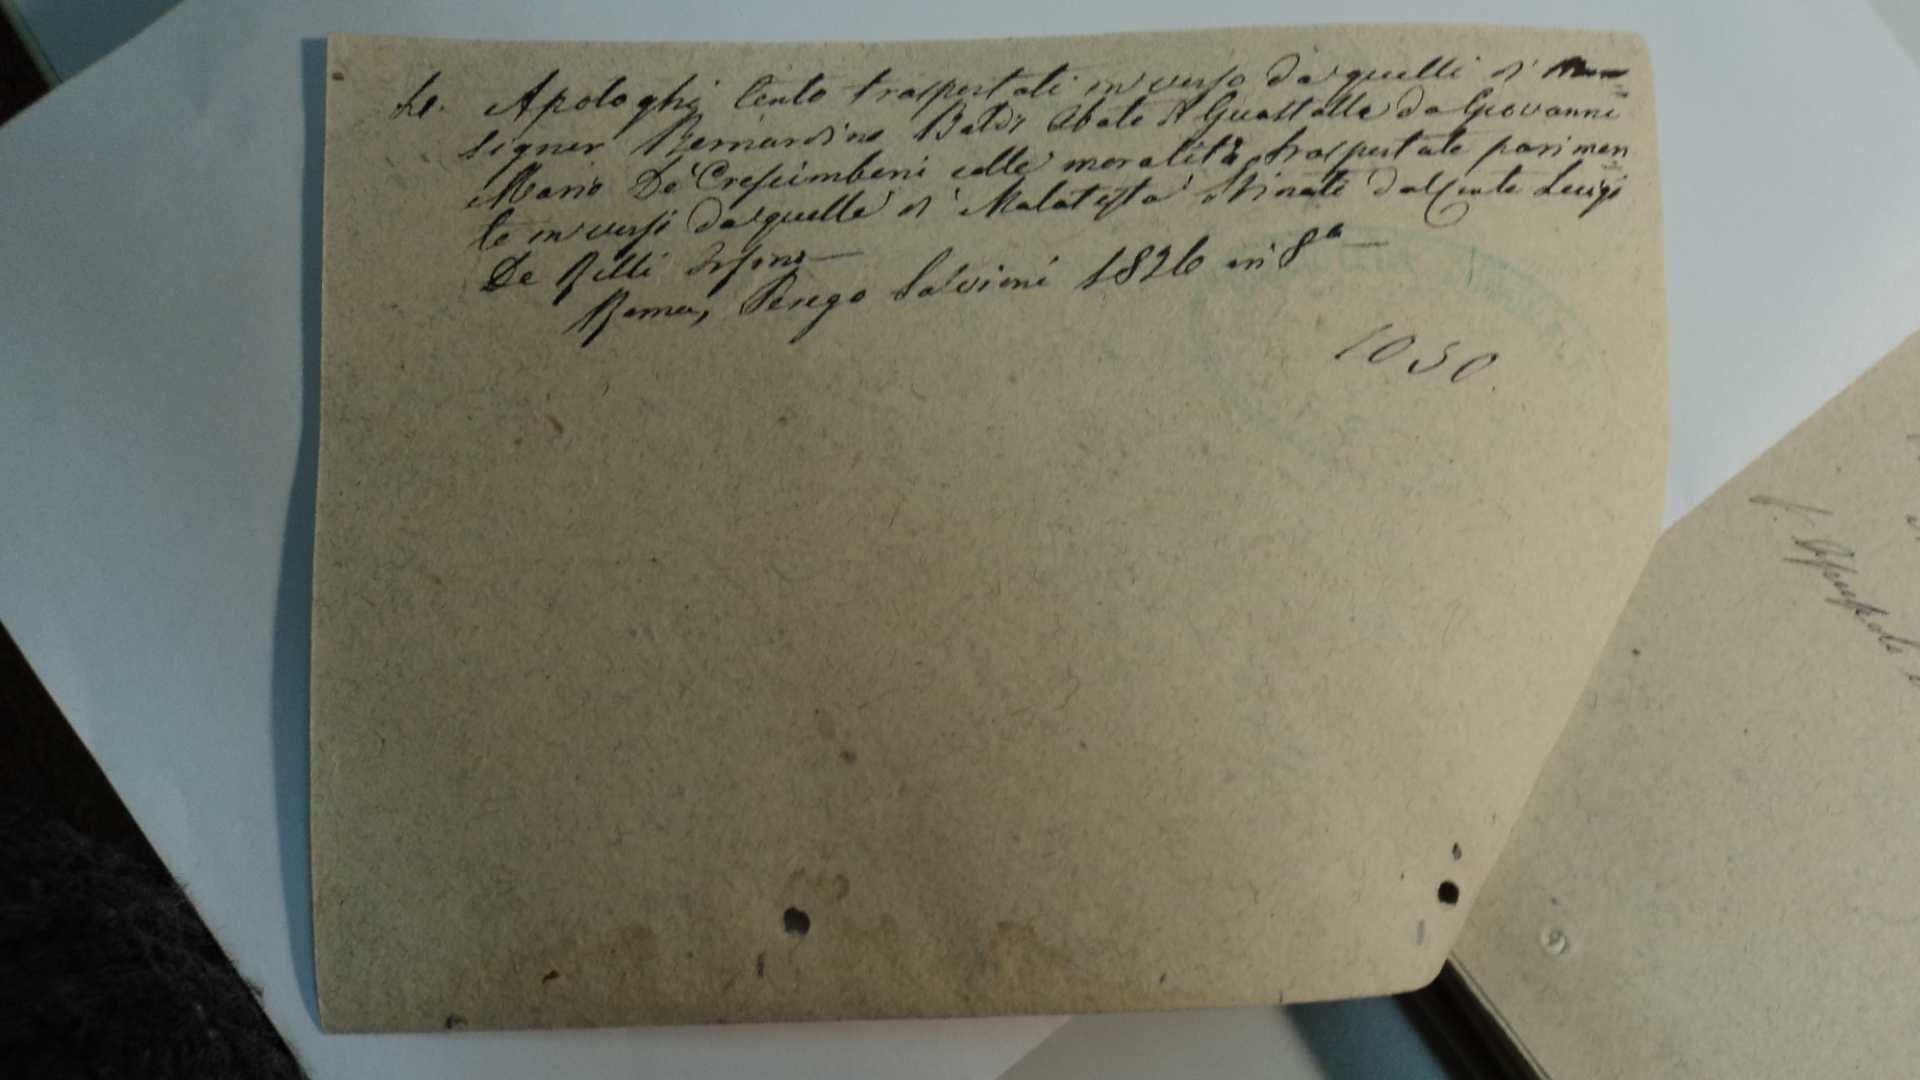 Apologhi Cento trasportati in verso da quelli di Mon=
signor Bernardino Baldi Abate di Guastalla da Giovanni
Mario De' Crescimbeni colle moralità trasportate parimen=
te in versi da quelle di Malatesta Strinati dal Conte Luigi
De Rilli Orsini
Roma, Perego Salvioni 1826 in 8°
1050